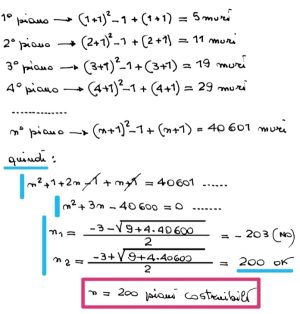 1° piano → (1+1)²-1 + (1+1) = 5 muri
2° piano → (2+1)²-1 + (2+1) = 11 muri
3° piano → (3+1)²-1 + (3+1) = 19 muri
4° piano → (4+1)²-1 + (4+1) = 29 muri
..............
n° piano → (n+1)²-1 + (n+1) = 40601 muri
quindi:
n²+1+2n-1+n+1 = 40601 ......
n²+3n-40600=0 .......
n₁ = (-3-√(9+4·40600))/2 = -203 (NO)
n₂ = (-3+√(9+4·40600))/2 = 200 OK
n = 200 piani costruibili